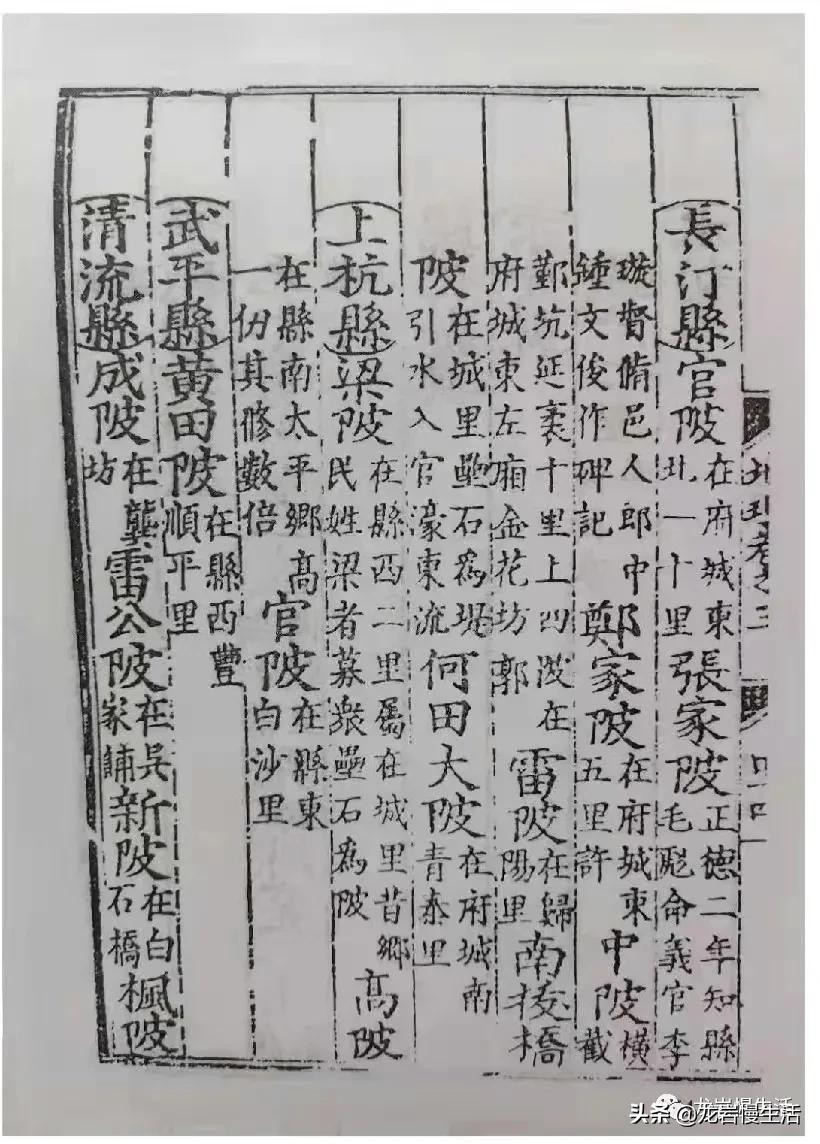 長汀縣官陂在府城東北一十里張家陂正德二年知縣毛彪命義官李
璇督脩邑人郎中鍾文俊作碑記鄭家陂在府城東五里許中陂橫截
鄞坑延袤十里上四陂在府城東左廂金花坊郭雷陂在歸陽里南拔橋
陂在城里壘石爲堤引水入官濠東流何田大陂在府城南青泰里
上杭縣梁陂在縣西二里屬在城里昔鄉民姓梁者募衆壘石爲陂高陂
在縣南太平鄉高一仞其修數倍官陂在縣東白沙里
武平縣黃田陂在縣西豐順平里
清流縣成陂在龔坊雷公陂在吳家鋪新陂在白石橋楓陂
龙岩慢生活
头条 @龙岩慢生活